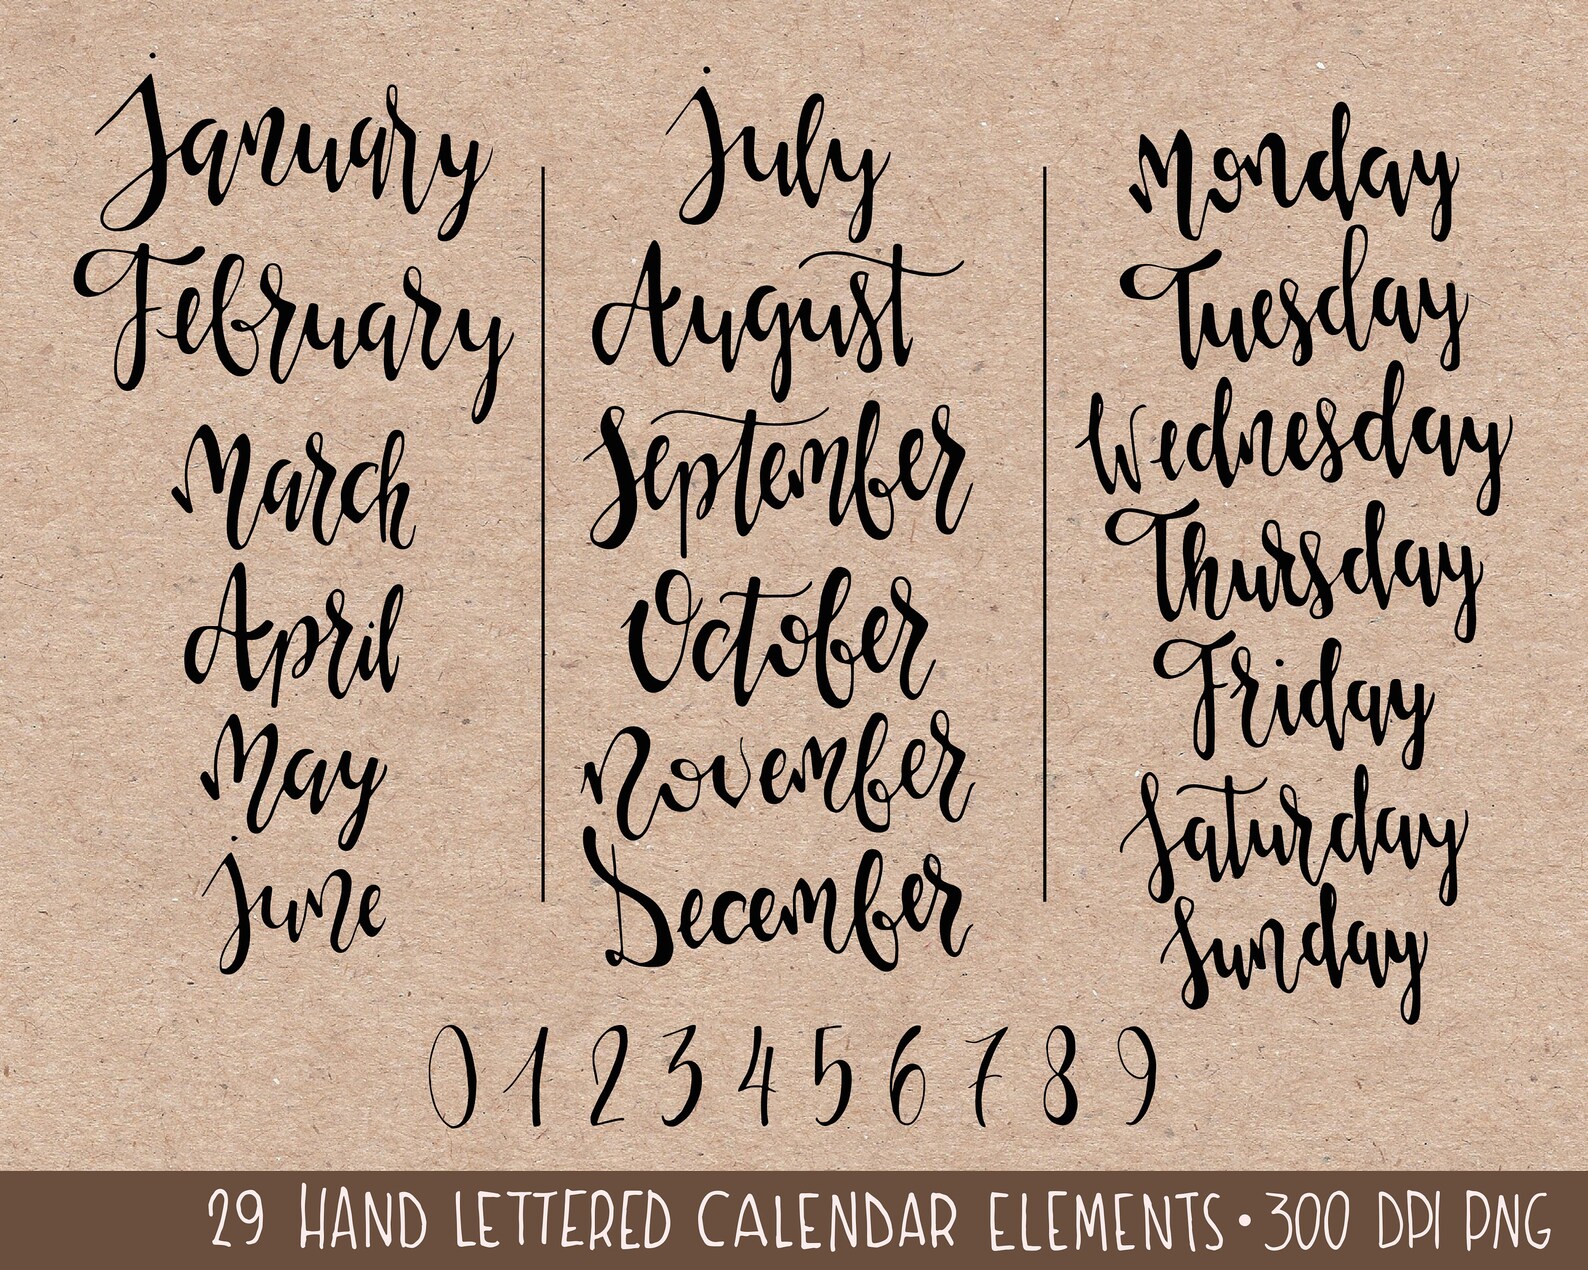 January
February
March
April
May
June
July
August
September
October
November
December
Monday
Tuesday
Wednesday
Thursday
Friday
Saturday
Sunday
0 1 2 3 4 5 6 7 8 9
29 HAND LETTERED CALENDAR ELEMENTS • 300 DPI PNG